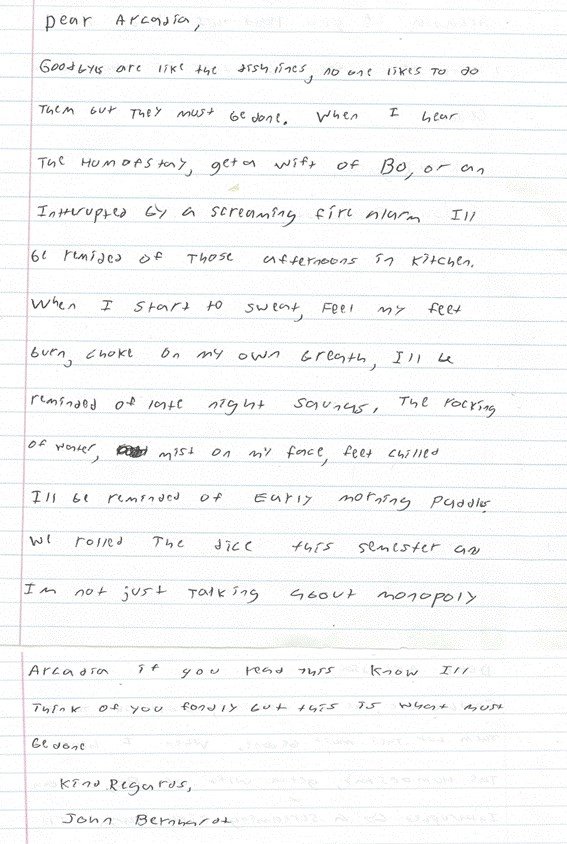 Dear Arcadia,
Goodbyes are like the dishlines, no one likes to do
Them but They must be done. When I hear
The Humofstay, get a wift of Bo, or an
Interupted by a screaming fire alarm Ill
be remided of Those afternoons in kitchen.
When I start to sweat, Feel my feet
burn, choke on my own breath, I'll be
reminded of late night saunas, The rocking
of water, mist on my face, feet chilled
Ill be reminded of Early morning paddles
We rolled The dice this semester an
Im not just Talking about monopoly
Arcadia if you read this know Ill
Think of you fondly but this is what must
be done
Kind Regards,
John Bernhardt